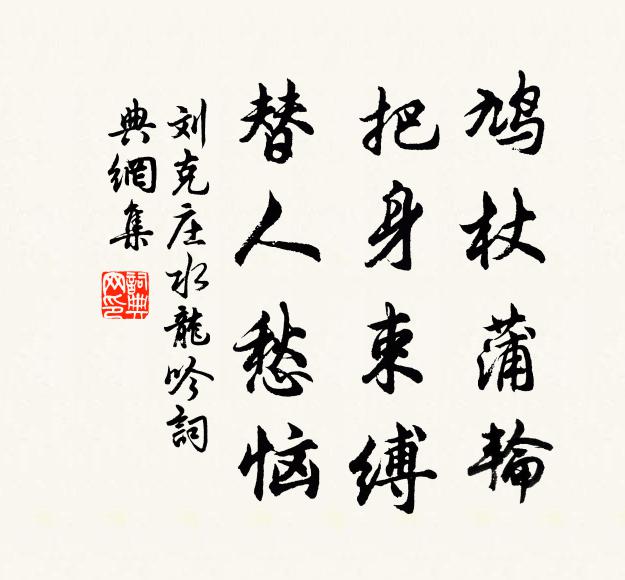 鸠杖蒲輪
把身束缚
替人愁恼
刘克庄水龍吟詞
典網集
詞典网印